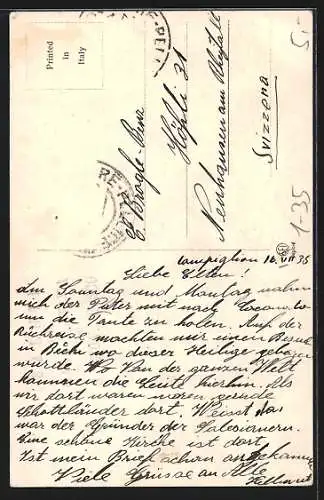 Printed
in
Italy
E. Brogle-Benz
Höfli 21
Neuhausen am Rheinfall
Svizzera
1-35
Campiglion 16. VII 35
Liebe Eltern!
Am Sonntag und Montag nahm
mich der Pater mit nach Locarno
um die Tante zu holen. Auf der
Rückreise machten wir einen Besuch
in Becchi wo dieser Heilige geboren
wurde. Von der ganzen Welt
kommen die Leute hierhin. Als
wir dort waren waren gerade
Schottländer dort. Weisst das
war der Gründer der Salesianern.
Eine schöne Kirche ist dort.
Ist mein Brief schon angekommen
Viele Grüsse an Alle
Hellmut